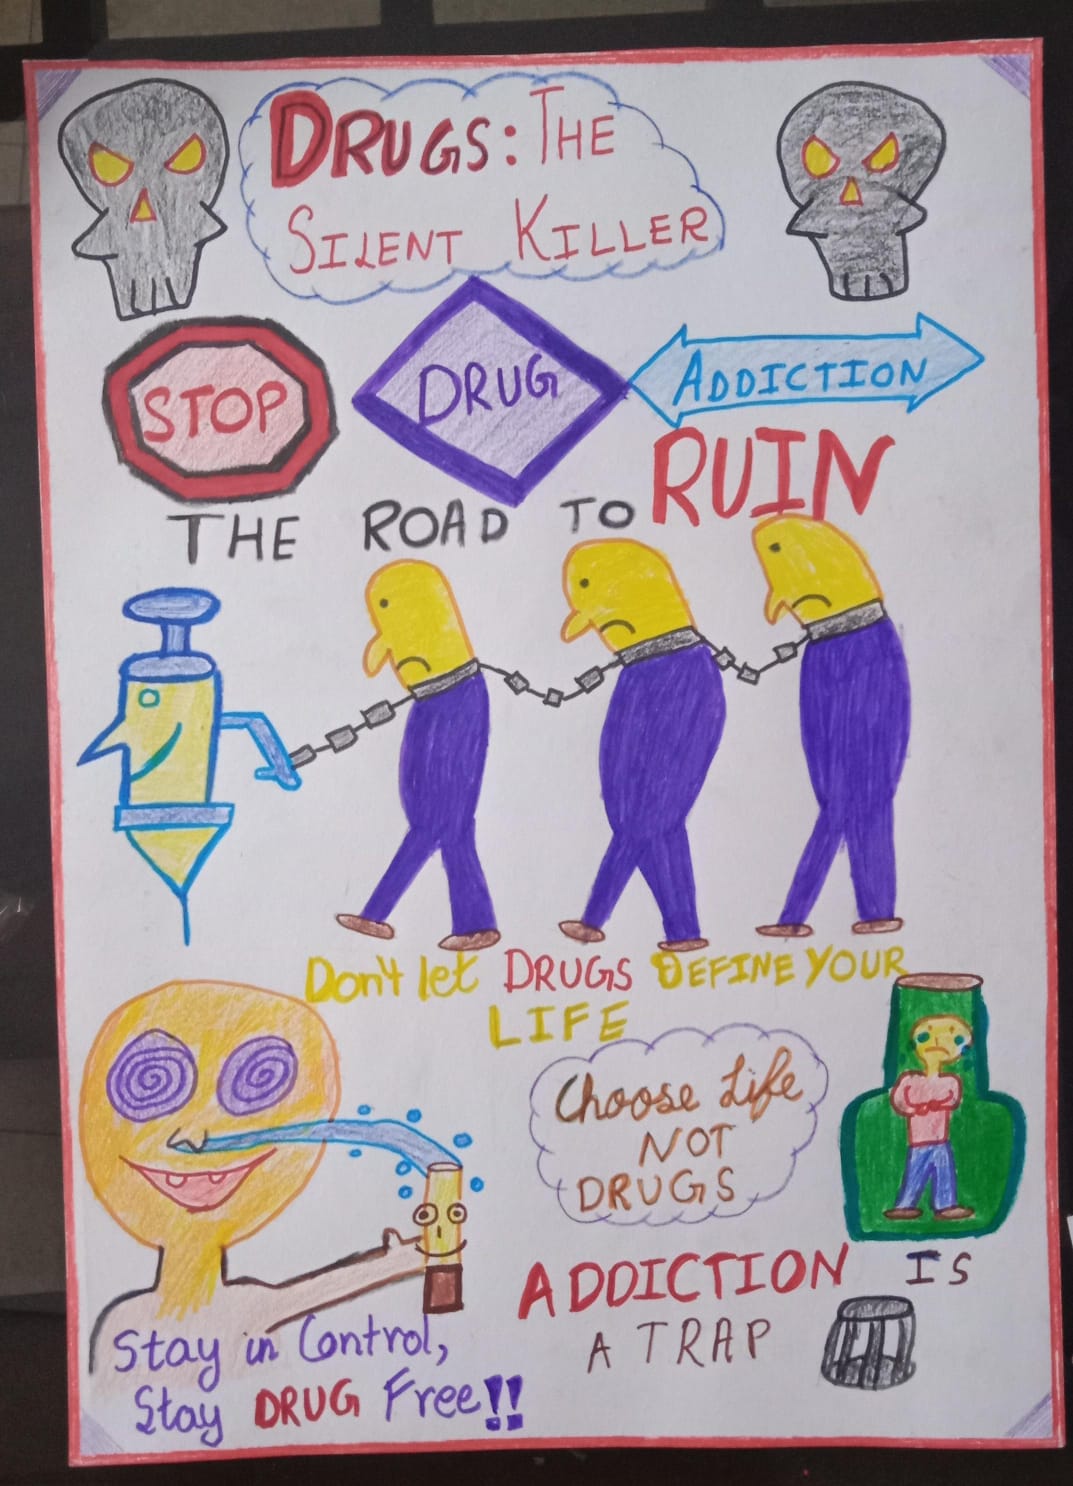 DRUGS: THE
SILENT KILLER
STOP
DRUG
ADDICTION
THE ROAD TO RUIN
Don't let DRUGS DEFINE YOUR
LIFE
Choose Life
NOT
DRUGS
ADDICTION IS
A TRAP
Stay in Control,
Stay DRUG Free!!